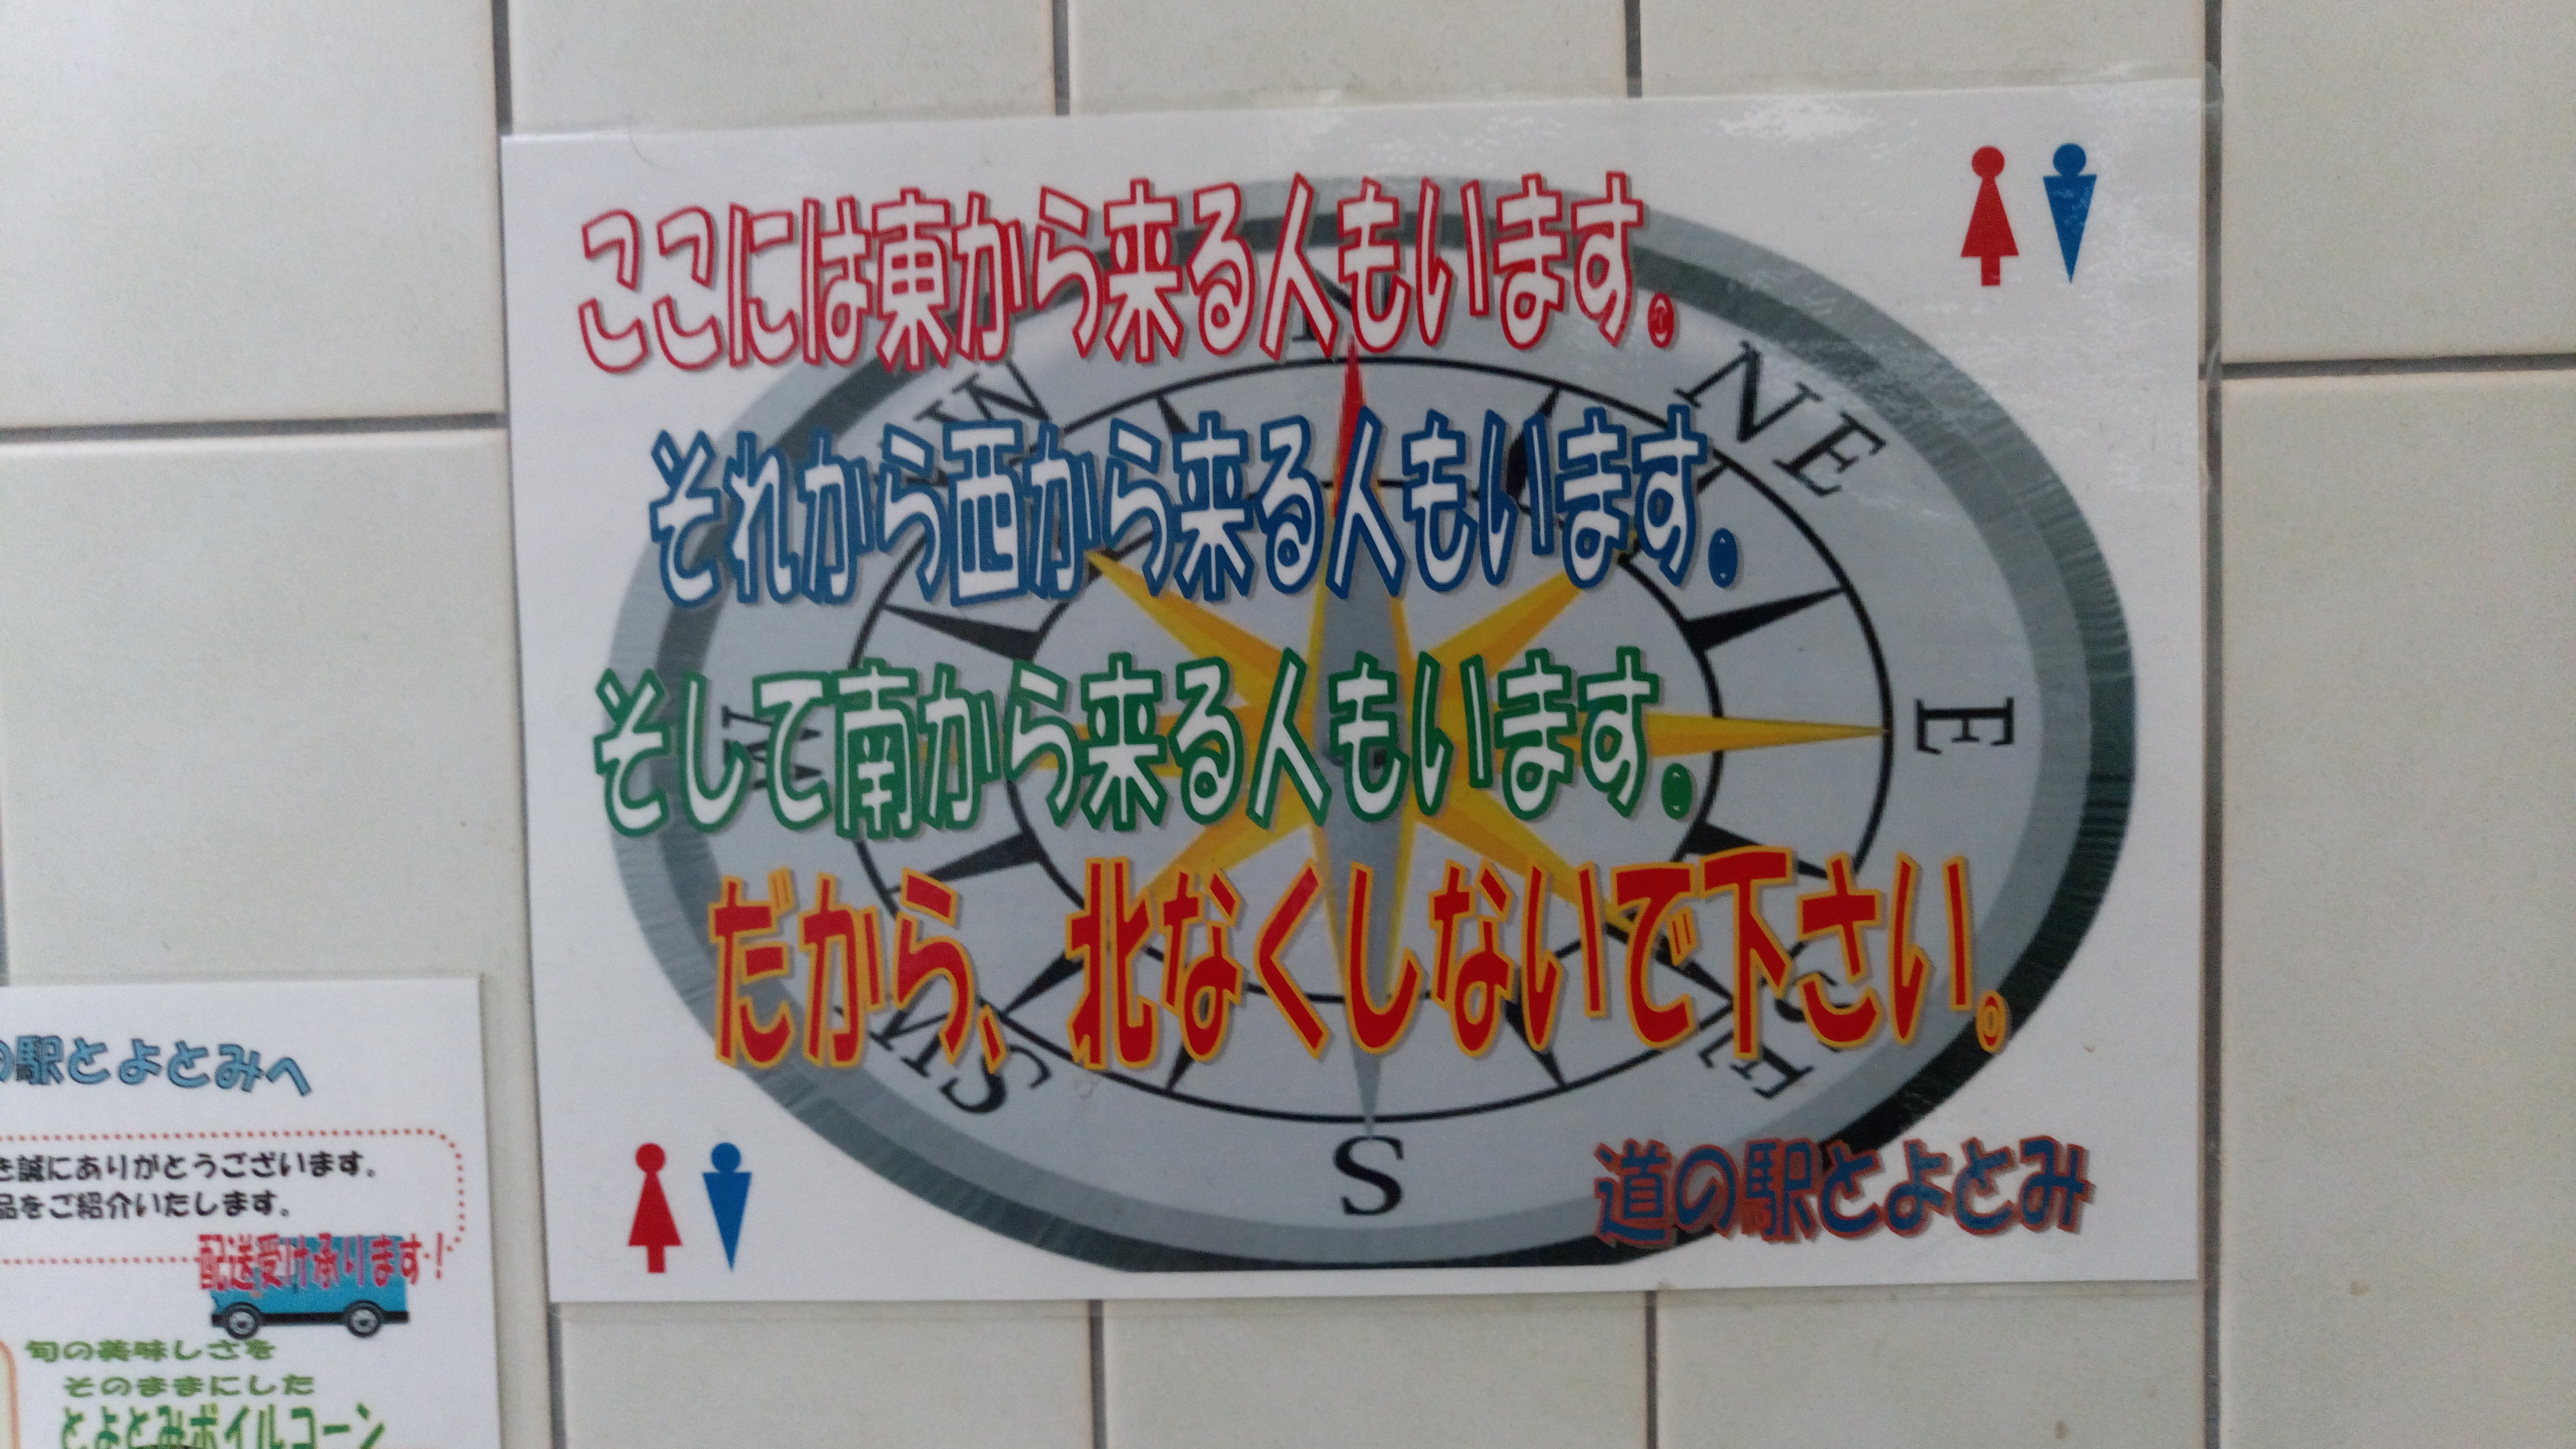 ここには東から来る人もいます。
それから西から来る人もいます。
そして南から来る人もいます。
だから、北なくしないで下さい。
道の駅とよとみ
NE
E
SE
S
SW
W
の駅とよとみへ
を誠にありがとうございます。
品をご紹介いたします。
配送受け承ります!
旬の美味しさを
そのままにした
とよとみボイルコーン